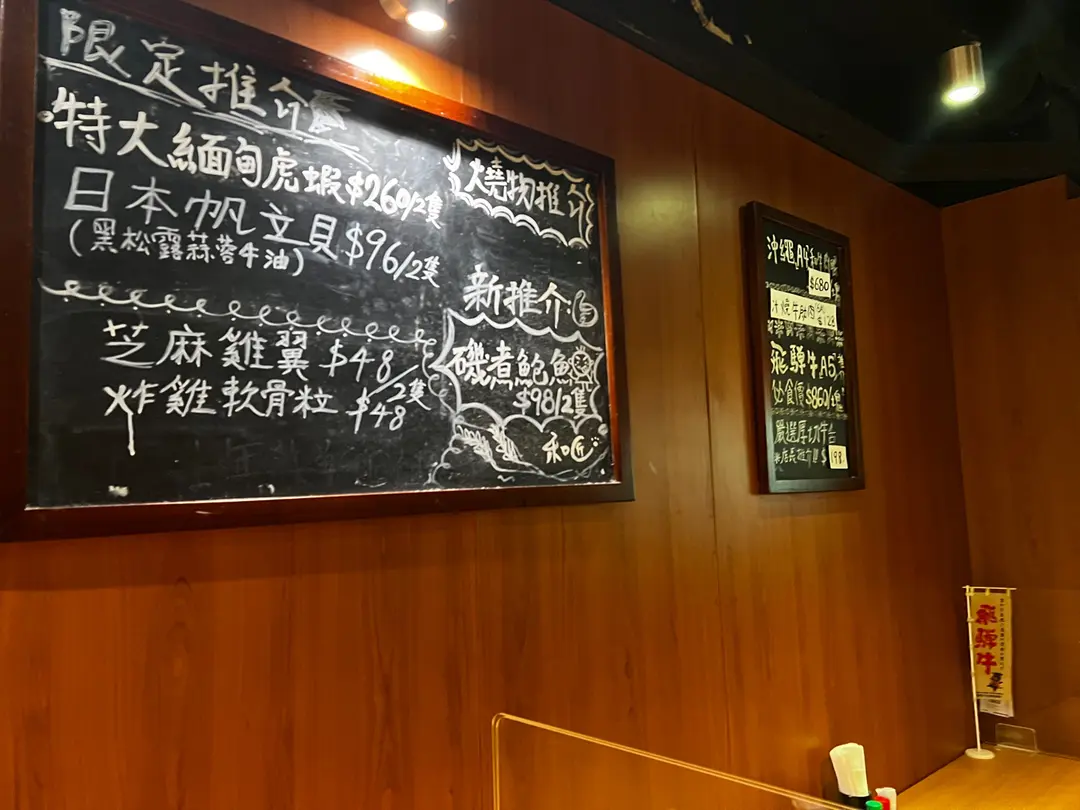 限定推介
特大緬甸虎蝦$260/2隻
日本帆立貝$96/2隻
(黑松露蒜蓉牛油)
芝麻雞翼 $48/2隻
炸雞軟骨粒 $48
燒物推介
新推介
磯煮鮑魚
$98/2隻
和匠
沖繩A4和牛
$680
$128
飛驒牛A5
必食價$860/
嚴選厚切牛舌
$198
飛驒牛